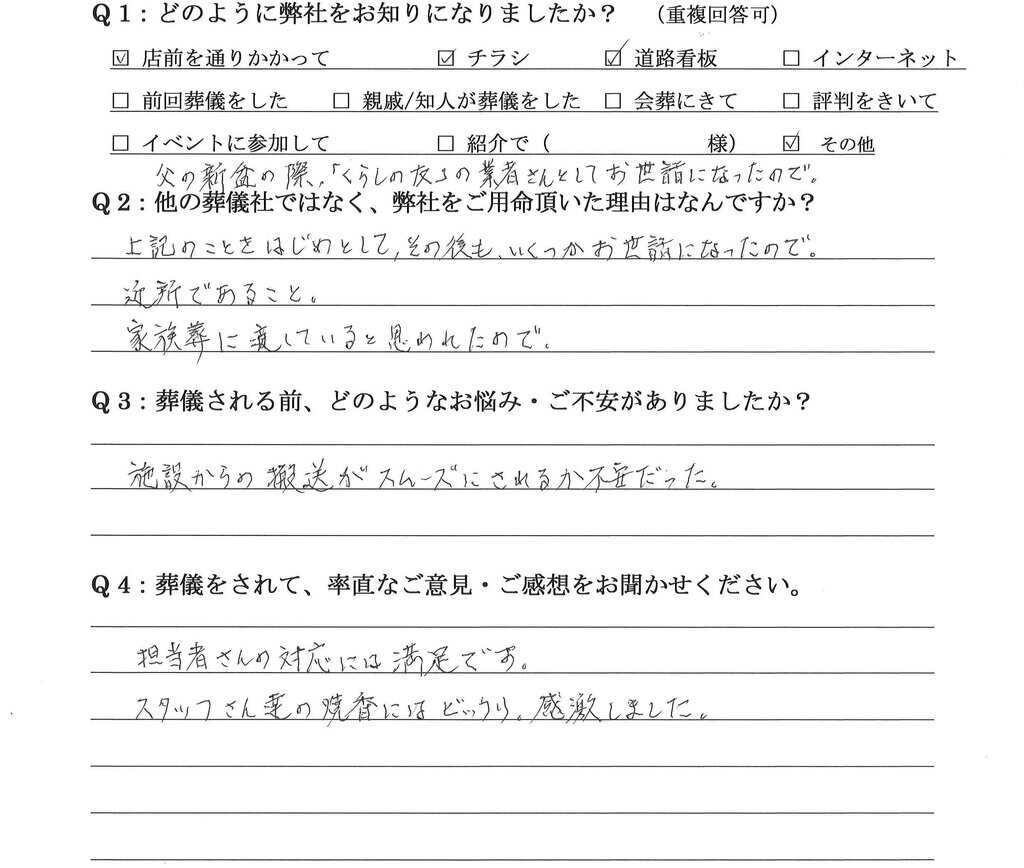 Q1：どのように弊社をお知りになりましたか？　（重複回答可）
☑ 店前を通りかかって　☑ チラシ　☑ 道路看板　□ インターネット
□ 前回葬儀をした　□ 親戚/知人が葬儀をした　□ 会葬にきて　□ 評判をきいて
□ イベントに参加して　□ 紹介で（　　　　　　　様）　☑ その他
父の新盆の際、「くらしの友」の業者さんとしてお世話になったので。
Q2：他の葬儀社ではなく、弊社をご用命頂いた理由はなんですか？
上記のことをはじめとして、その後も、いくつかお世話になったので。
近所であること。
家族葬に適していると思われたので。
Q3：葬儀される前、どのようなお悩み・ご不安がありましたか？
施設からの搬送がスムーズにされるか不安だった。
Q4：葬儀をされて、率直なご意見・ご感想をお聞かせください。
担当者さんの対応には満足です。
スタッフさん達の焼香にはびっくり。感激しました。